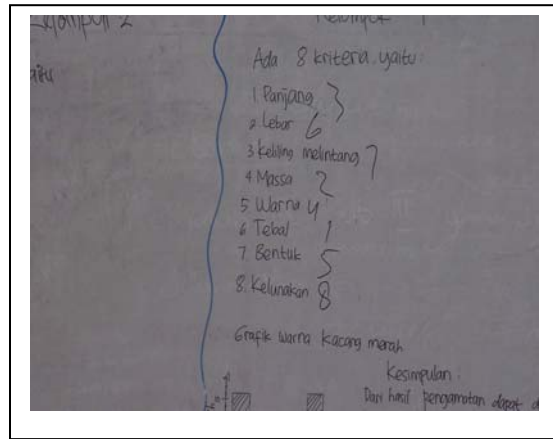 Kelompok 2
Kelompok 1
aitu
Ada 8 kriteria yaitu:
1. Panjang 3
2. Lebar 6
3 Keliling melintang 7
4 Massa 2
5 Warna 4
6 Tebal 1
7 Bentuk 5
8. Kelunakan 8
Grafik warna kacang merah
Kesimpulan :
Dari hasil pengamatan dapat d